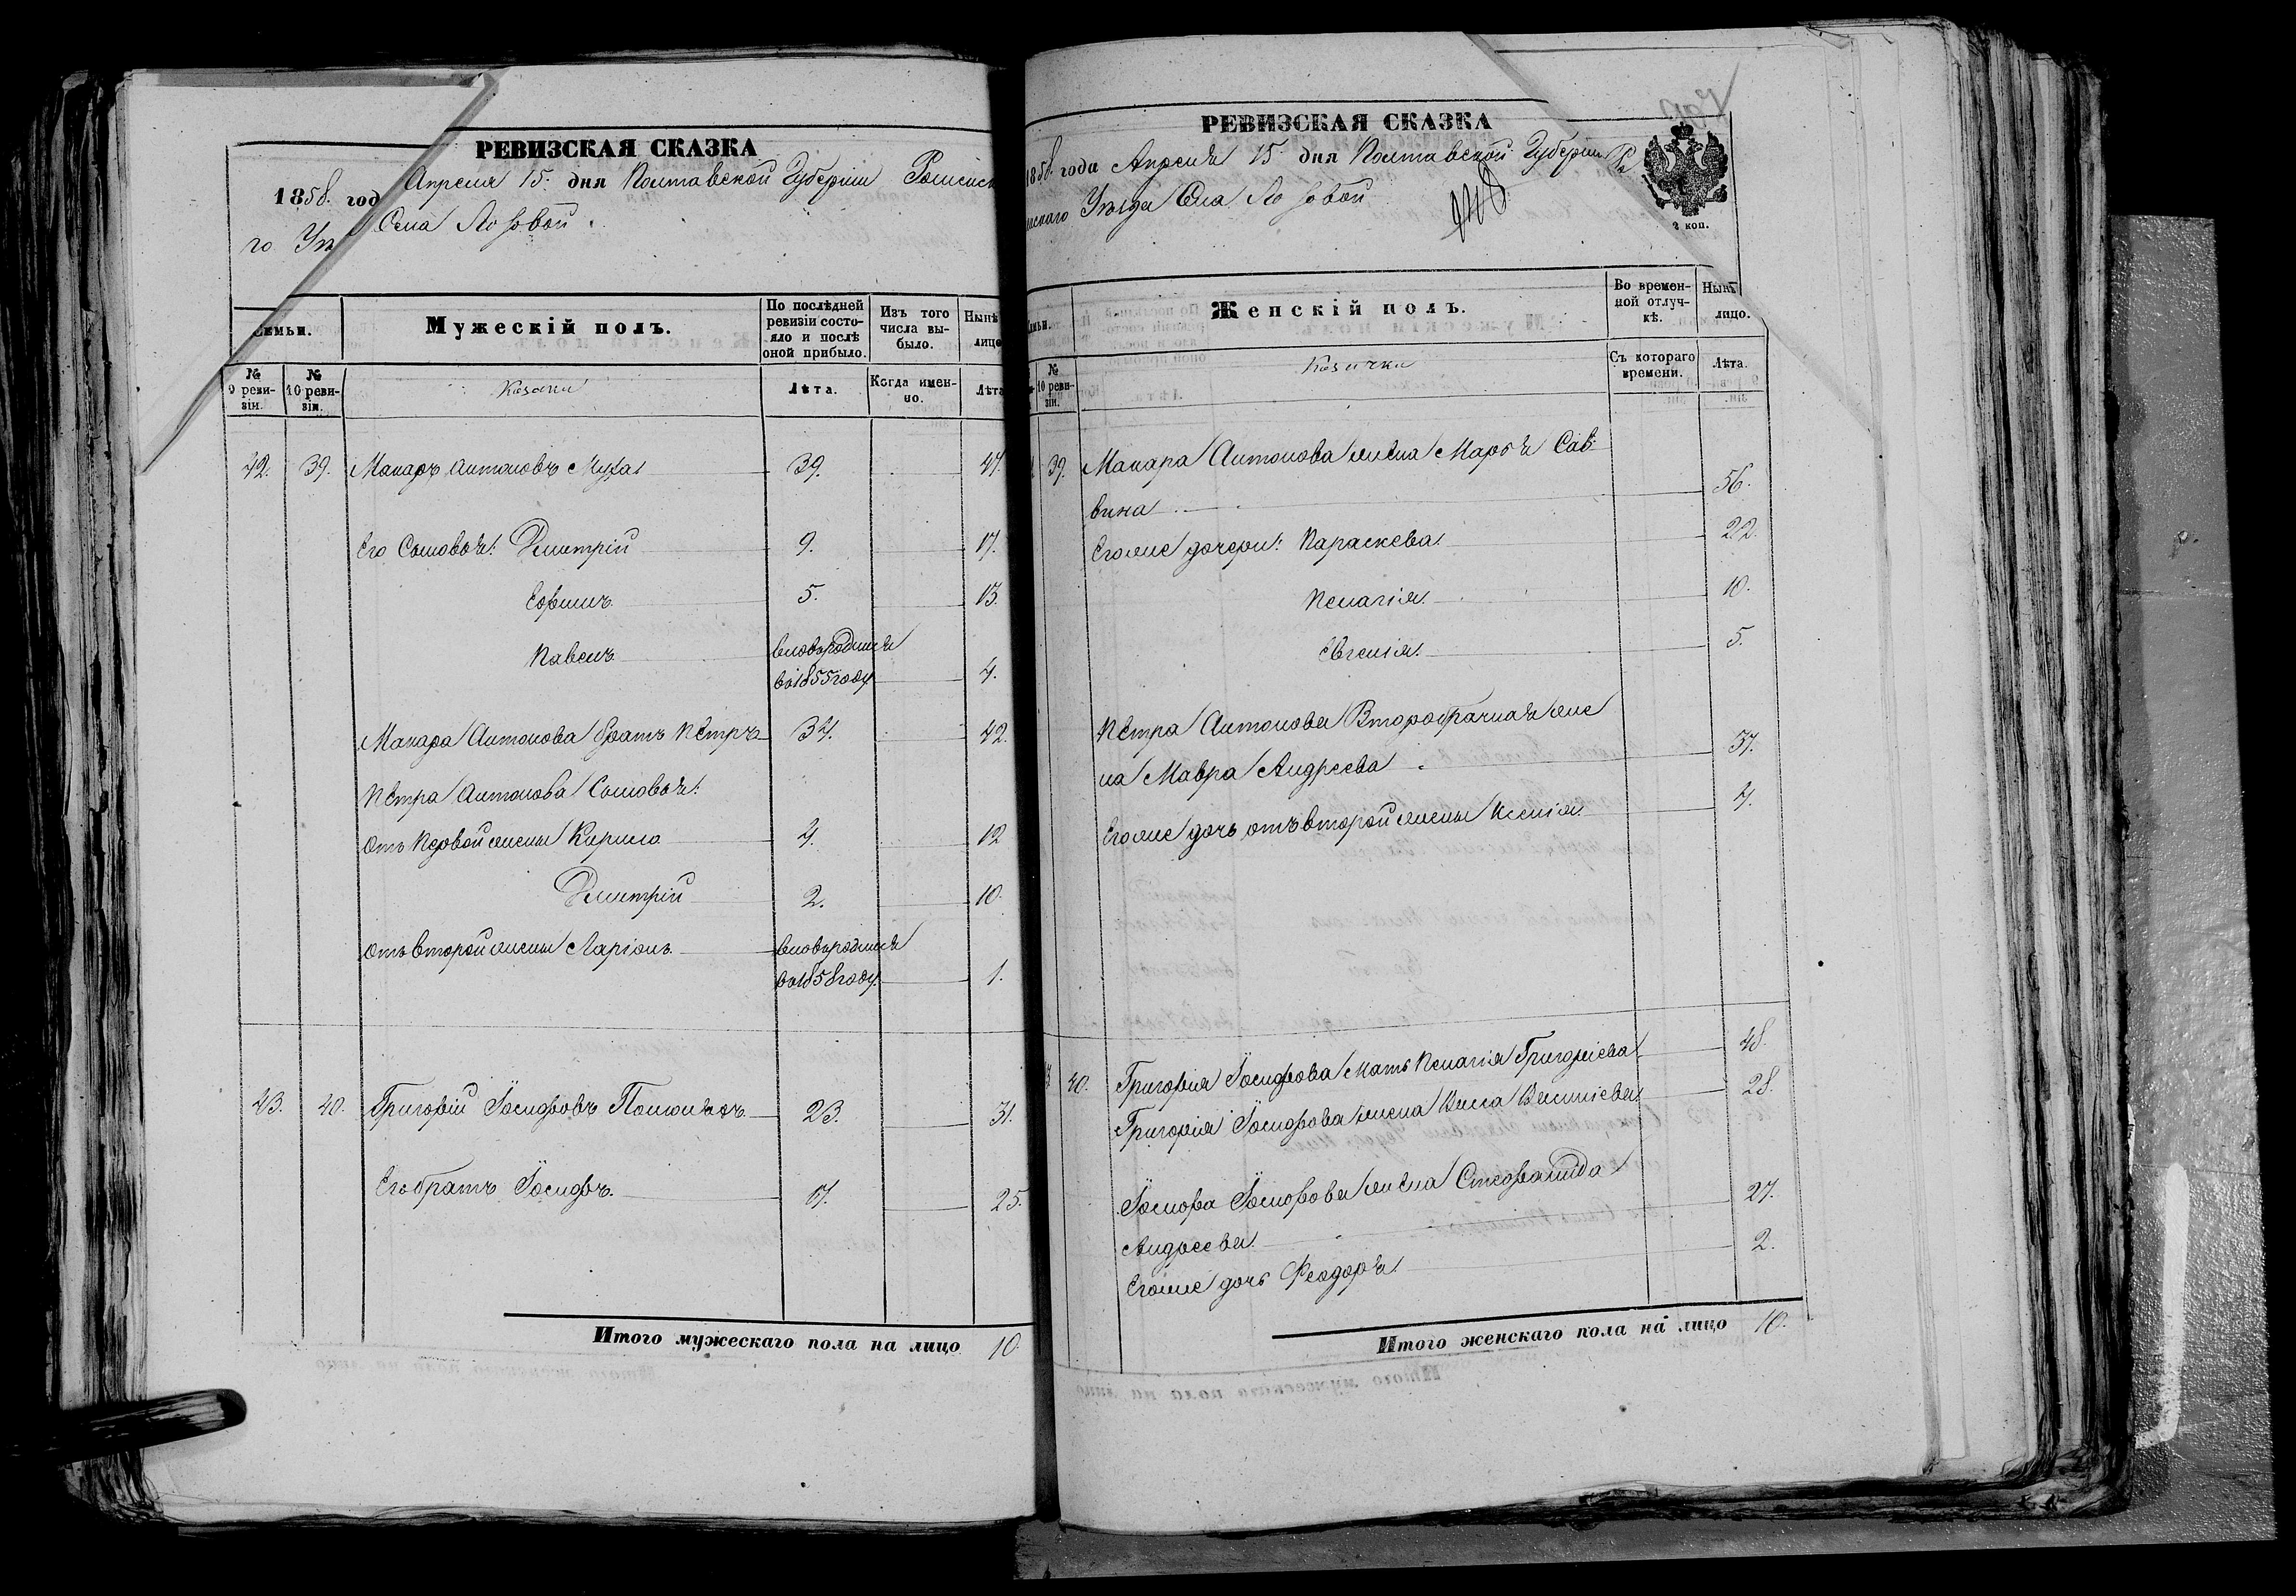 РЕВИЗСКАЯ СКАЗКА
1858. год Апреля 15. дня Полтавской Губернии Роменска
го Уѣ Села Лозовой.
Семьи.
Мужескій полъ.
По послѣдней ревизіи состо-
яло и послѣ оной прибыло.
Изъ того числа вы-
было.
Нынѣ лицо
№ 9 реви-
зіи.
№ 10 реви-
зіи.
Козаки
Лѣта.
Когда имен-
но.
Лѣта
42. 39. Макаръ Антоновъ Муха 39. 47.
Его Сыновья: Дмитрій 9. 17.
Ефимъ 5. 13.
Павелъ вновьродился
во1855году 4.
Макара Антонова братъ Петръ 34. 42.
Петра Антонова Сыновья:
Отъ Первой жены Кирило 4. 12
Дмитрій 2. 10.
Отъ второй жены Ларіонъ вновьродился
во1858году. 1.
43. 40. Григорій Іосифовъ 23. 31.
Его братъ Іосифъ 17. 25.
Итого мужескаго пола на лицо 10
РЕВИЗСКАЯ СКАЗКА
1858. года Апреля 15. дня Полтавской Губерніи Ро
менскаго Уѣзда Села Лозовой
2 коп.
Женскій полъ.
Во времен-
ной отлуч-
кѣ.
Нынѣ лицо.
№ 10 реви-
зіи.
Козачки
Съ котораго времени.
Лѣта.
39. Макара Антонова жена Марья Сав-
вина 56.
Егоже дочери: Параскева 22.
Пелагія 10.
Евгенія 5.
Петра Антонова Второбрачная же
на Мавра Андреева 37.
Егоже дочь отъ второй жены Ксенія 4.
40. Григорія Іосифова Мать Пелагія Григоріева 48.
Григорія Іосифова жена Васса Василіева 28.
Іосифа Іосифова жена Стефанида
Андреева 27.
Егоже дочь Феодора 2.
Итого женскаго пола на лицо 10.